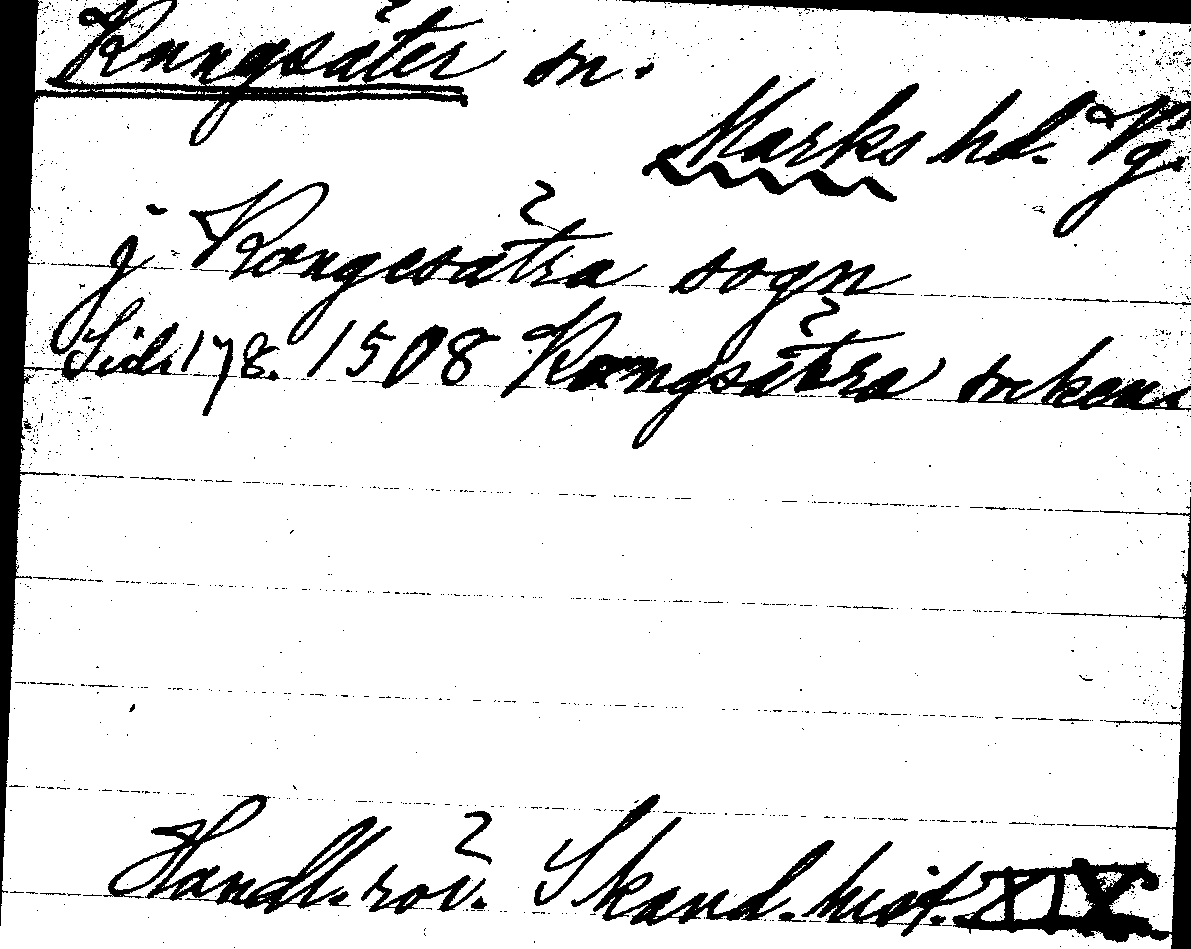 Kungsäter sn.
Marks hd. Vg.
j Kongesätra sogn
Sid. 178. 1508 Kongsätra sokens
Handl. rör. Skand. hist. XIX